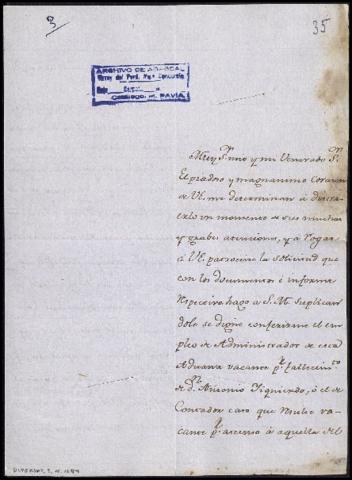 3
35
ARCHIVO DE ABASCAL
Virrey del Perú,
PAVIA
Muy S.r mio y mi Venerado S.r
El piadoso y magnanimo Corazon
de VE. me determinan á distra-
erlo un momento de sus muchas
y grabes atenciones, y á rogar
á VE. patrocine la solicitud que
con los documentos é informe
respectivo hago á S.M. suplican
dole se digne conferirme el em-
pleo de Administrador de esta
Aduana vacante p.r fallecim.to
de D.n Antonio Izquierdo, ó el de
Contador caso que resulte va-
cante p.r ascenso á aquella del